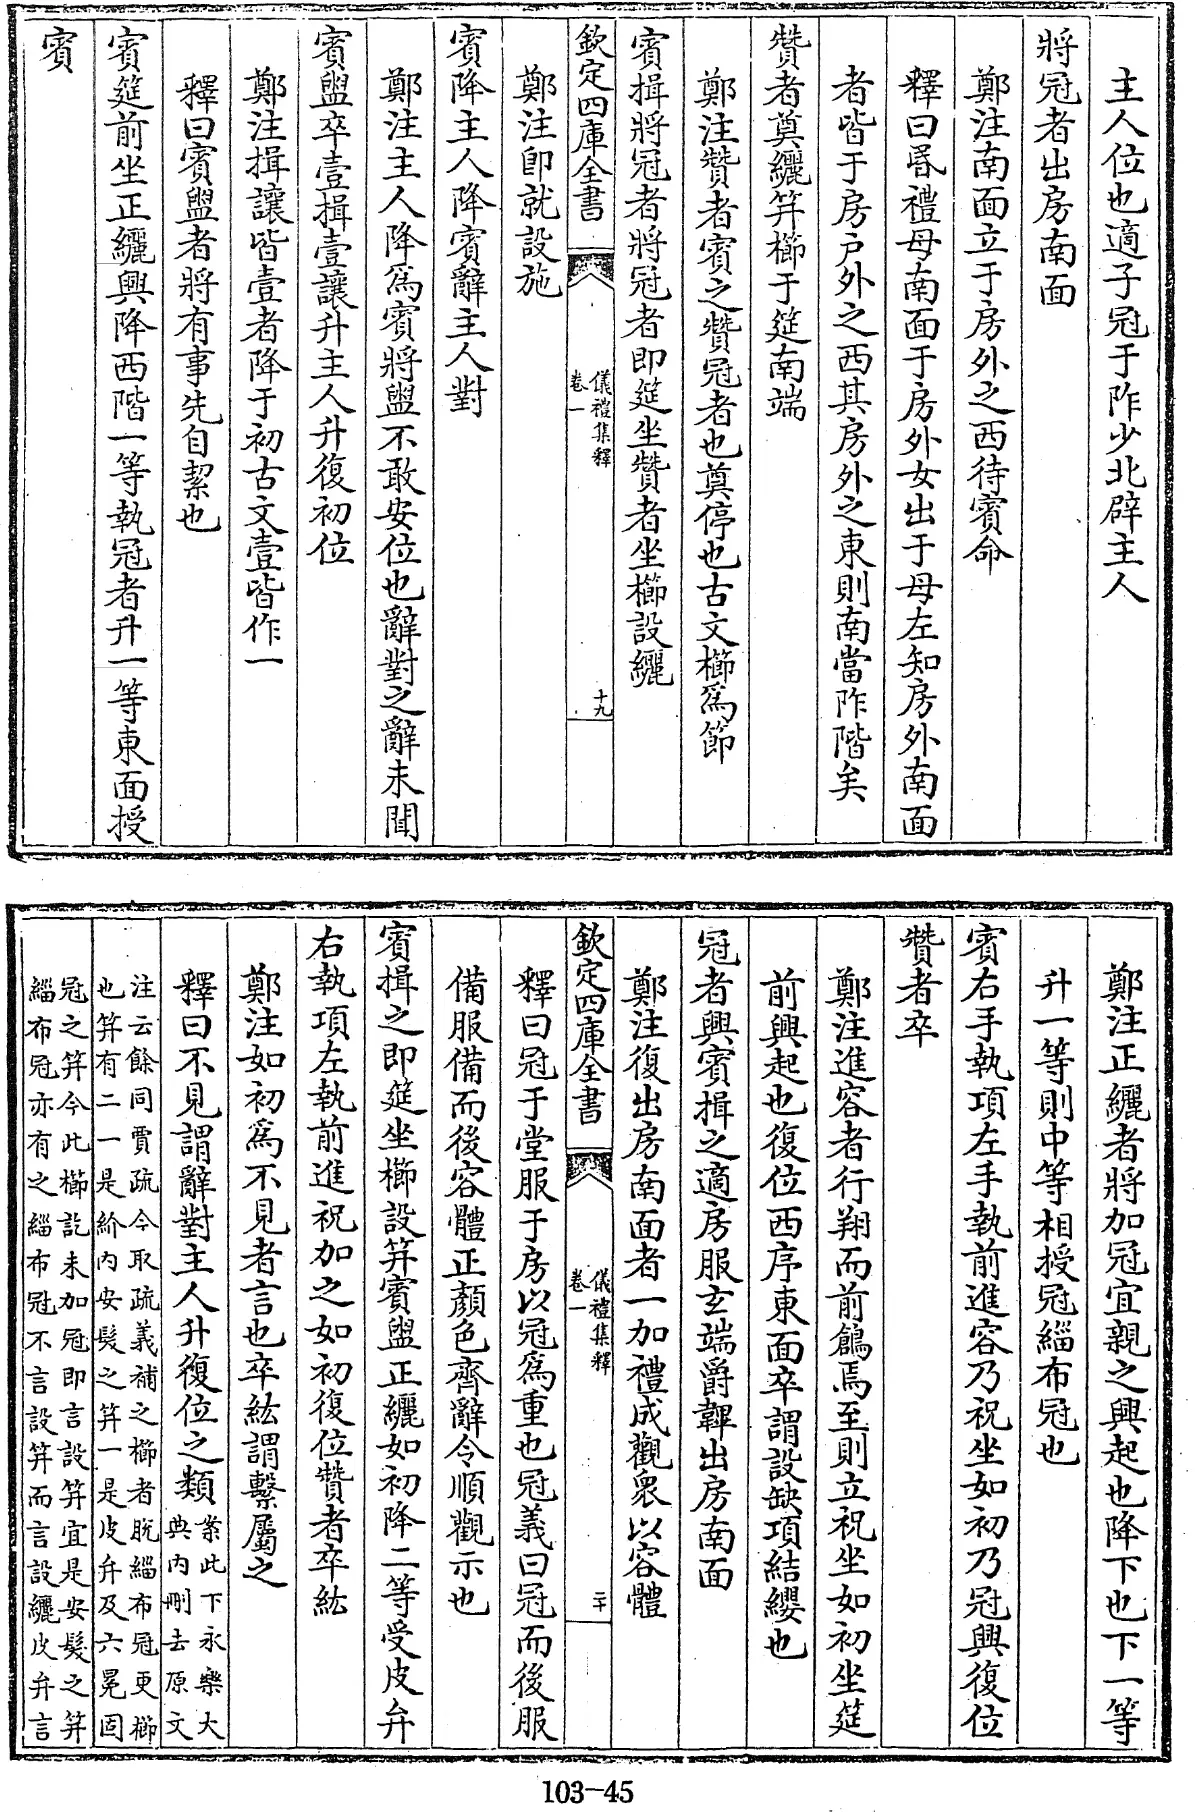 主人位也適子冠于阼少北辟主人
將冠者出房南面
鄭注南面立于房外之西待賓命
釋曰昏禮母南面于房外女出于母左知房外南面
者皆于房戸外之西其房外之東則南當阼階矣
贊者奠纚笄櫛于筵南端
鄭注贊者賓之贊冠者也奠停也古文櫛爲節
賓揖將冠者將冠者即筵坐贊者坐櫛設纚
欽定四庫全書
儀禮集釋
卷一
十九
鄭注即就設施
賓降主人降賓辭主人對
鄭注主人降爲賓將盥不敢安位也辭對之辭未聞
賓盥卒壹揖壹讓升主人升復初位
鄭注揖讓皆壹者降于初古文壹皆作一
釋曰賓盥者將有事先自潔也
賓筵前坐正纚興降西階一等執冠者升一等東面授
賓
鄭注正纚者將加冠宜親之興起也降下也下一等
升一等則中等相授冠緇布冠也
賓右手執項左手執前進容乃祝坐如初乃冠興復位
贊者卒
鄭注進容者行翔而前鶬焉至則立祝坐如初坐筵
前興起也復位西序東面卒謂設缺項結纓也
冠者興賓揖之適房服玄端爵韠出房南面
鄭注復出房南面者一加禮成觀衆以容體
欽定四庫全書
儀禮集釋
卷一
二十
釋曰冠于堂服于房以冠爲重也冠義曰冠而後服
備服備而後容體正顏色齊辭令順觀示也
賓揖之即筵坐櫛設笄賓盥正纚如初降二等受皮弁
右執項左執前進祝加之如初復位贊者卒紘
鄭注如初爲不見者言也卒紘謂繫屬之
釋曰不見謂辭對主人升復位之類
案此下永樂大
典內刪去原文
注云餘同賈疏今取疏義補之櫛者脫緇布冠更櫛
也笄有二一是紒內安髮之笄一是皮弁及六冕固
冠之笄今此櫛訖未加冠即言設笄宜是安髮之笄
緇布冠亦有之緇布冠不言設笄而言設纚皮弁言
103-45